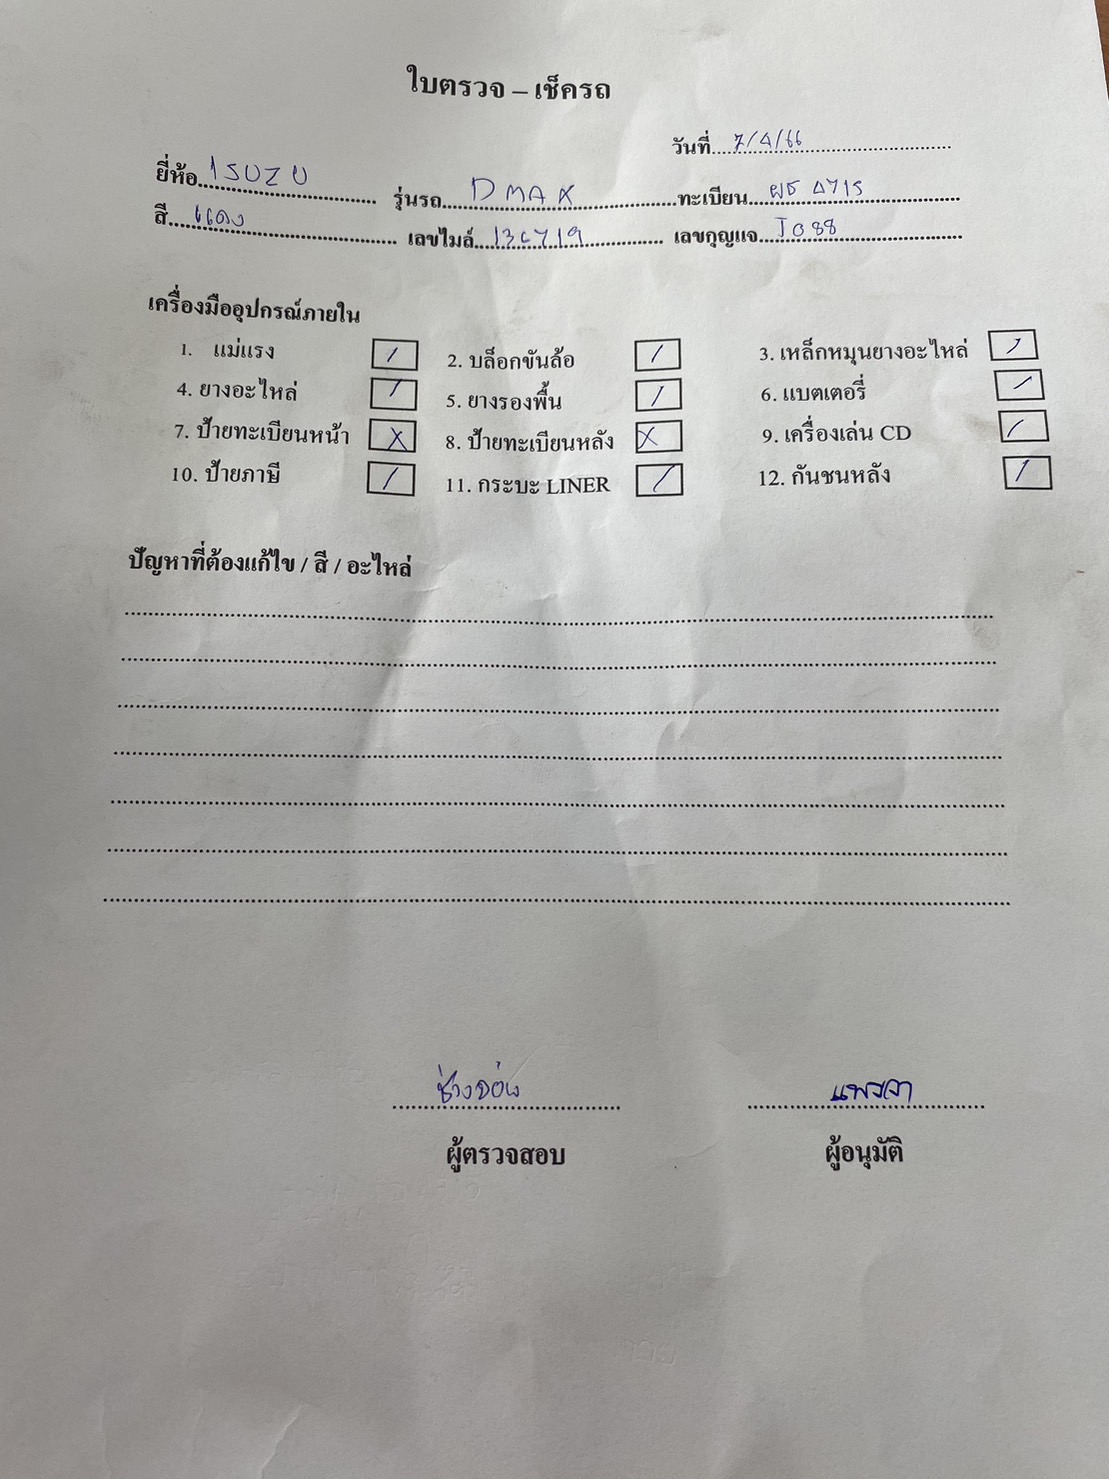 ใบตรวจ – เช็ครถ
วันที่ 7/4/66
ยี่ห้อ ISUZU รุ่นรถ DMAX ทะเบียน
สี แดง เลขไมล์ เลขกุญแจ J088
เครื่องมืออุปกรณ์ภายใน
1. แม่แรง / 2. บล็อกขันล้อ / 3. เหล็กหมุนยางอะไหล่ /
4. ยางอะไหล่ / 5. ยางรองพื้น / 6. แบตเตอรี่ /
7. ป้ายทะเบียนหน้า X 8. ป้ายทะเบียนหลัง X 9. เครื่องเล่น CD /
10. ป้ายภาษี / 11. กระบะ LINER / 12. กันชนหลัง /
ปัญหาที่ต้องแก้ไข / สี / อะไหล่
ผู้ตรวจสอบ ผู้อนุมัติ